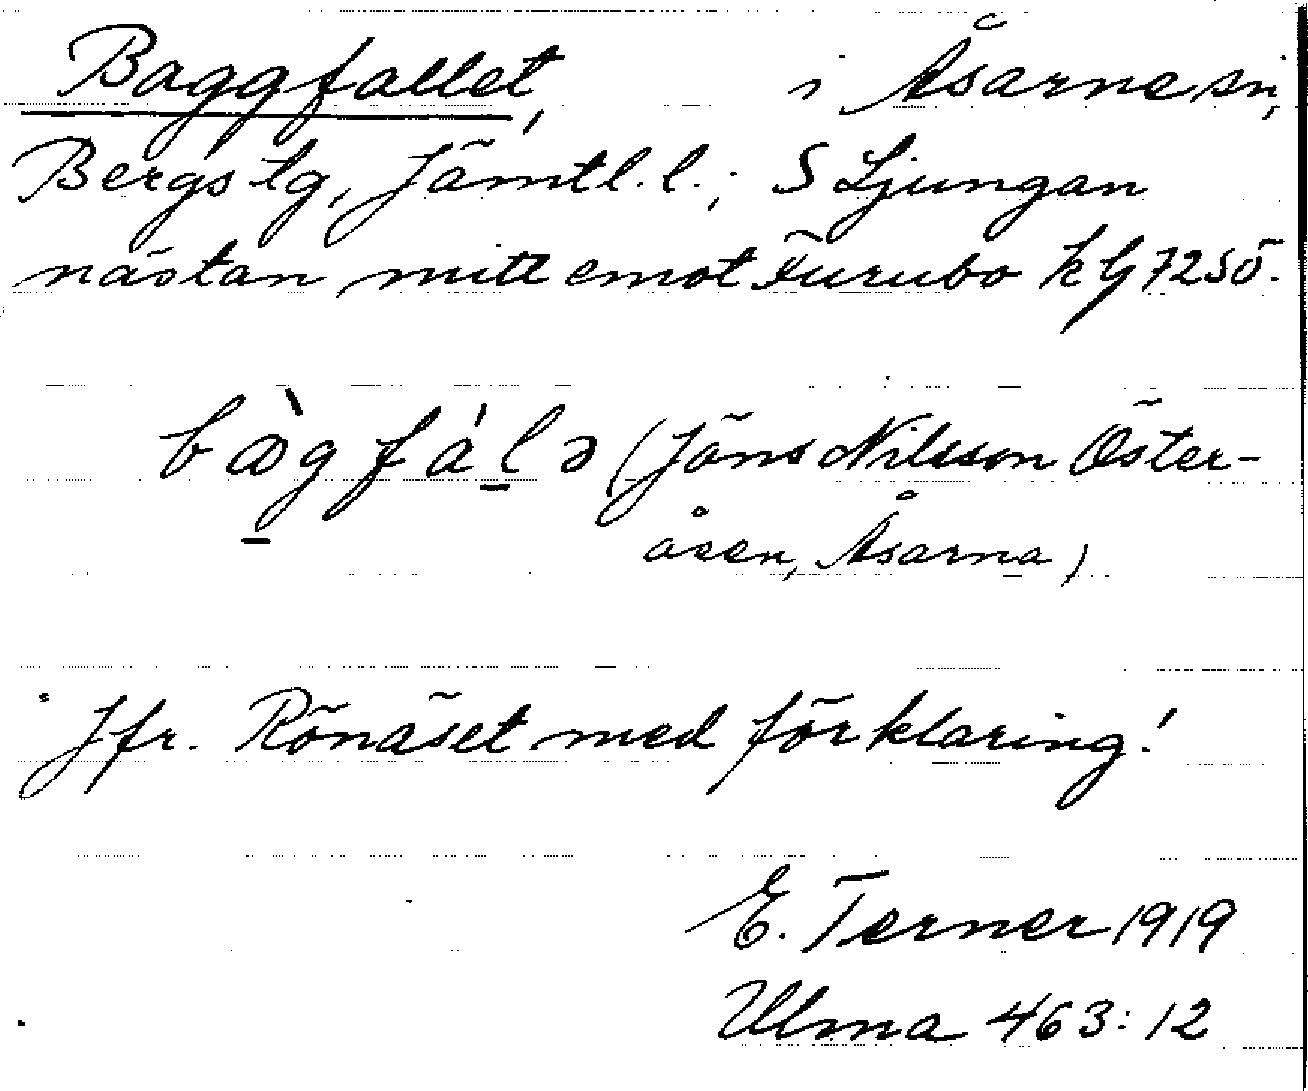 Baggfallet, i Åsarne sn,
Bergs tg, Jämtl. l.; S Ljungan
nästan mitt emot Furubo kg 72 SÖ.
bæ̀g fál ə (Jöns Nilsson Öster-
åsen, Åsarna)
Jfr. Rönäset med förklaring!
E. Terner 1919
Ulma 463:12